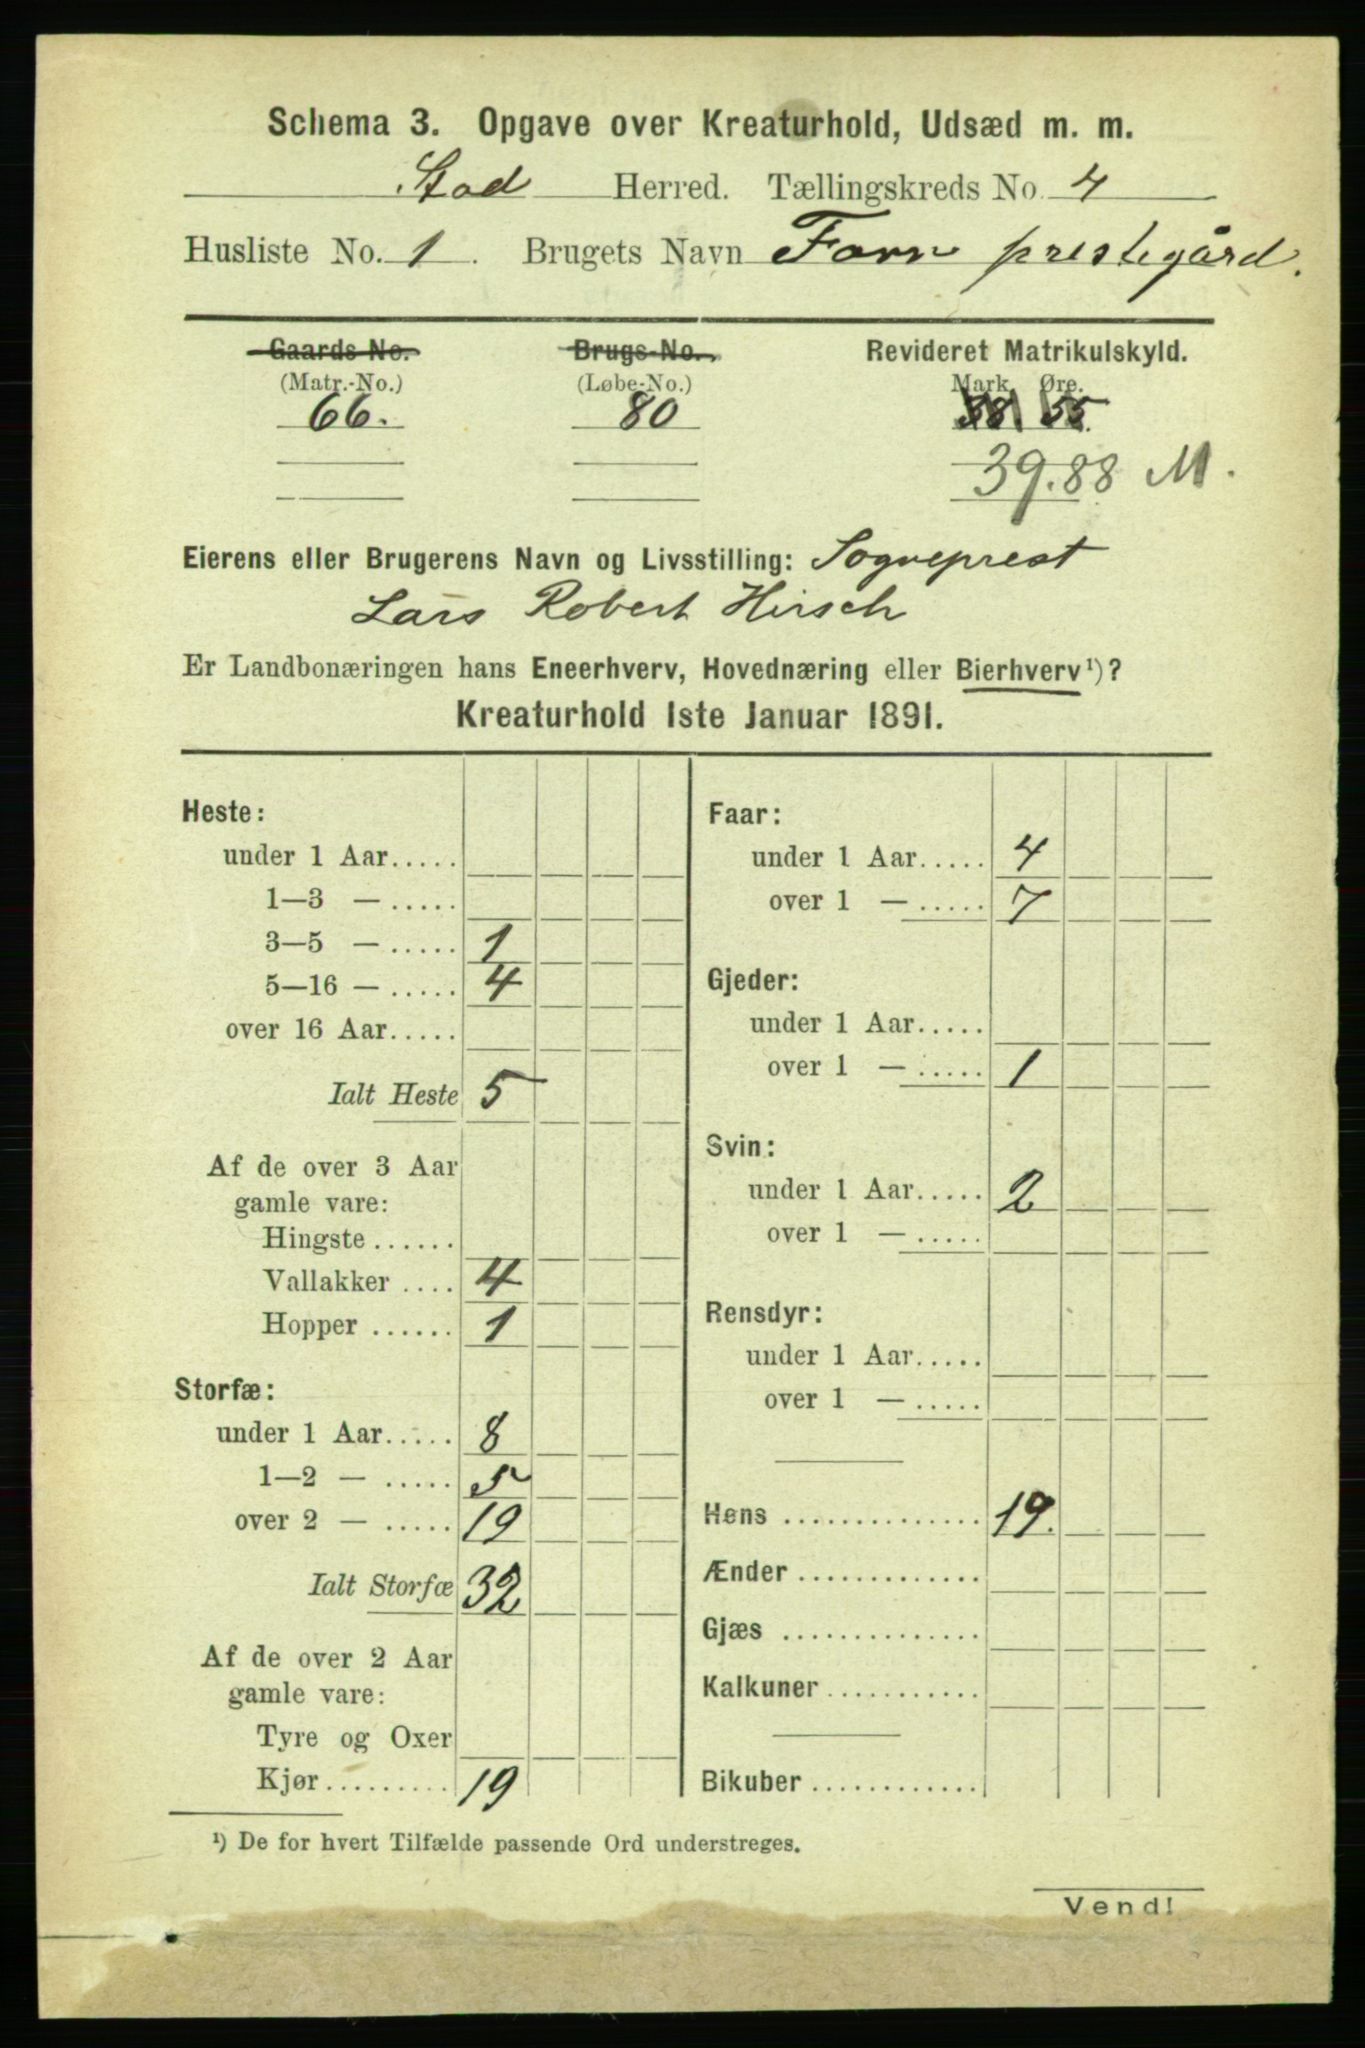 Schema 3. Opgave over Kreaturhold, Udsæd m. m.
Stod Herred. Tællingskreds No. 4
Husliste No. 1. Brugets Navn Forr prestegård.
Gaards-No. Brugs-No. Revideret Matrikulskyld.
(Matr.-No.) (Løbe-No.) Mark. Øre.
66. 80 38 55.
39.88 M.
Eierens eller Brugerens Navn og Livsstilling: Sogneprest
Lars Robert Hirsch
Er Landbonæringen hans Eneerhverv, Hovednæring eller Bierhverv ¹)?
Kreaturhold 1ste Januar 1891.
Heste:
under 1 Aar.....
1—3 — .....
3—5 — ..... 1
5—16 — ..... 4
over 16 Aar.....
Ialt Heste 5
Af de over 3 Aar
gamle vare:
Hingste ......
Vallakker .... 4
Hopper ...... 1
Storfæ:
under 1 Aar..... 8
1—2 — ..... 5
over 2 — ..... 19
Ialt Storfæ 32
Af de over 2 Aar
gamle vare:
Tyre og Oxer
Kjør......... 19
Faar:
under 1 Aar..... 4
over 1 — ..... 7
Gjeder:
under 1 Aar.....
over 1 — ..... 1
Svin:
under 1 Aar..... 2
over 1 — .....
Rensdyr:
under 1 Aar.....
over 1 — .....
Høns .............. 19.
Ænder .............
Gjæs ..............
Kalkuner ...........
Bikuber ............
¹) De for hvert Tilfælde passende Ord understreges.
Vend!